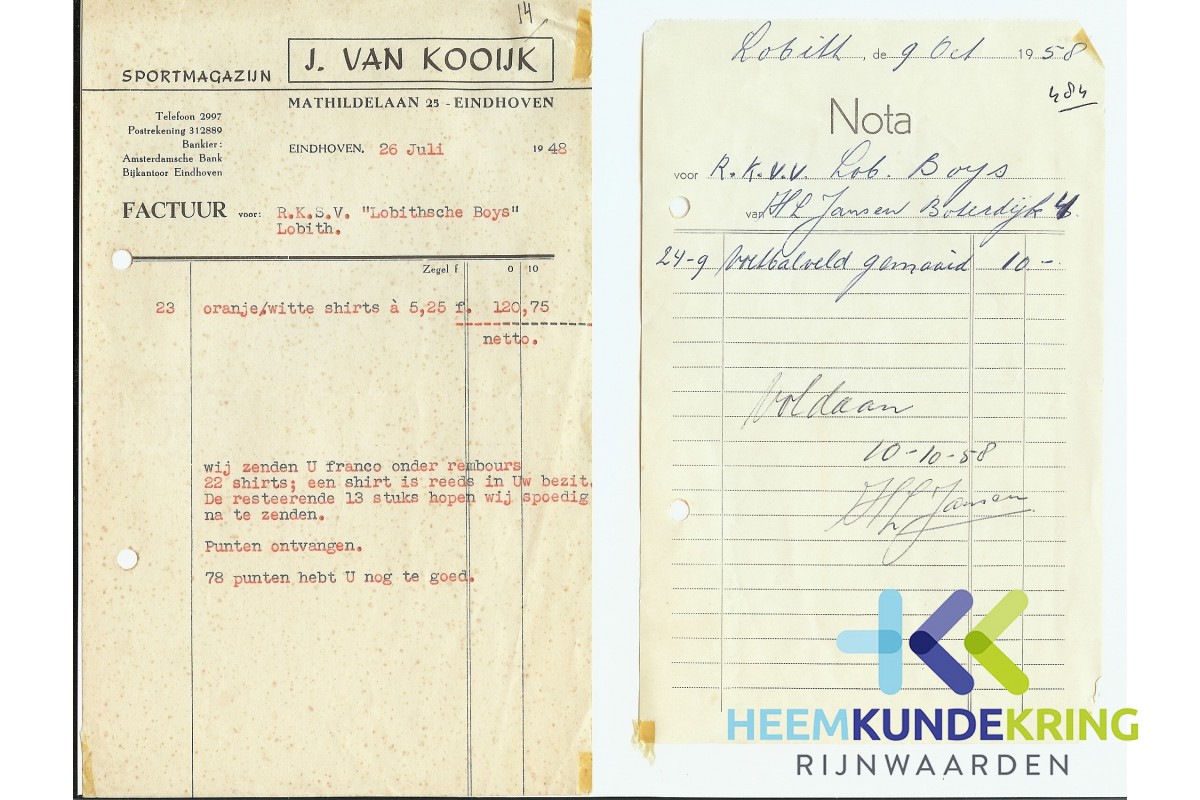 14
SPORTMAGAZIJN J. VAN KOOIJK
MATHILDELAAN 25 - EINDHOVEN
Telefoon 2997
Postrekening 312889
Bankier:
Amsterdamsche Bank
Bijkantoor Eindhoven
EINDHOVEN, 26 Juli 1948
FACTUUR voor: R.K.S.V. "Lobithsche Boys"
Lobith.
Zegel f 0 10
23 oranje/witte shirts à 5,25 f. 120,75
netto.
wij zenden U franco onder rembours
22 shirts; een shirt is reeds in Uw bezit.
De resteerende 13 stuks hopen wij spoedig
na te zenden.
Punten ontvangen.
78 punten hebt U nog te goed.
Lobith, de 9 Oct 1958
484
Nota
voor R.K.V.V. Lob. Boys
van H L Jansen Boterdijk
24-9 Voetbalveld gemaaid 10-
Voldaan
10-10-58
H L Jansen
HEEMKUNDEKRING
RIJNWAARDEN